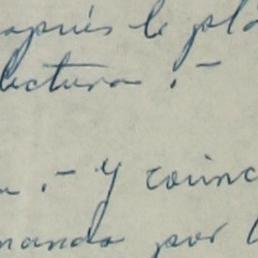 después le pl
lectura . -
. - Y coinc
mando por l